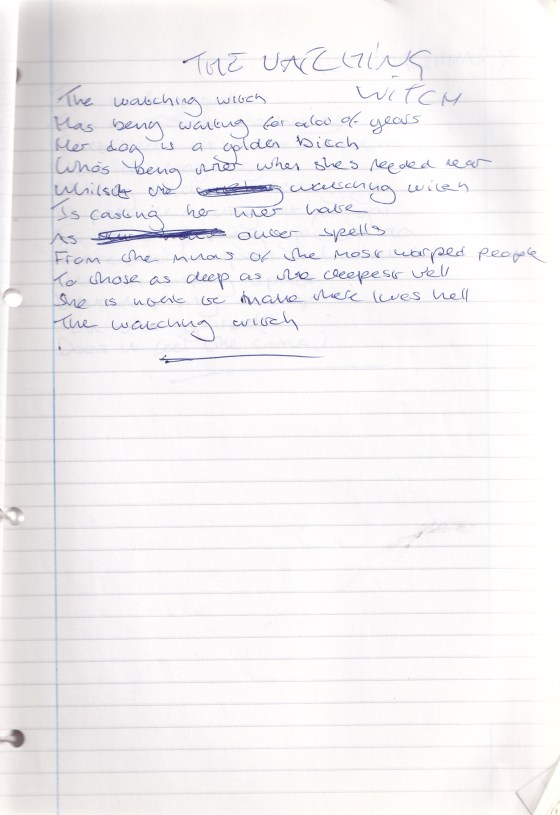 THE WATCHING
WITCH
The watching witch
Has being waiting for alot of years
Her dog is a golden Bitch
Who's being there when she's needed near
Whilst the watching witch
Is casting her inner hate
As outer spells
From the minds of the most warped people
To those as deep as the deepest well
She is out to make there lives hell
The watching witch